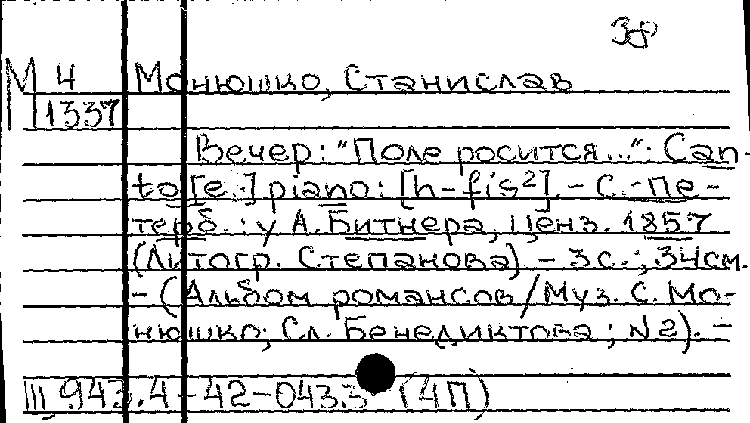 38
М 4 Монюшко, Станислав
1337
Вечер: "Поле росится...": Can-
to [e.] piano: [h-fis²]. - С.-Пе-
терб.: у А. Битнера, Ценз. 1857
(Литогр. Степанова). - 3 с.; 34 см.
- (Альбом романсов / Муз. С. Мо-
нюшко; Сл. Бенедиктова; N 2). -
III 943.4-42-043.3 (4П)